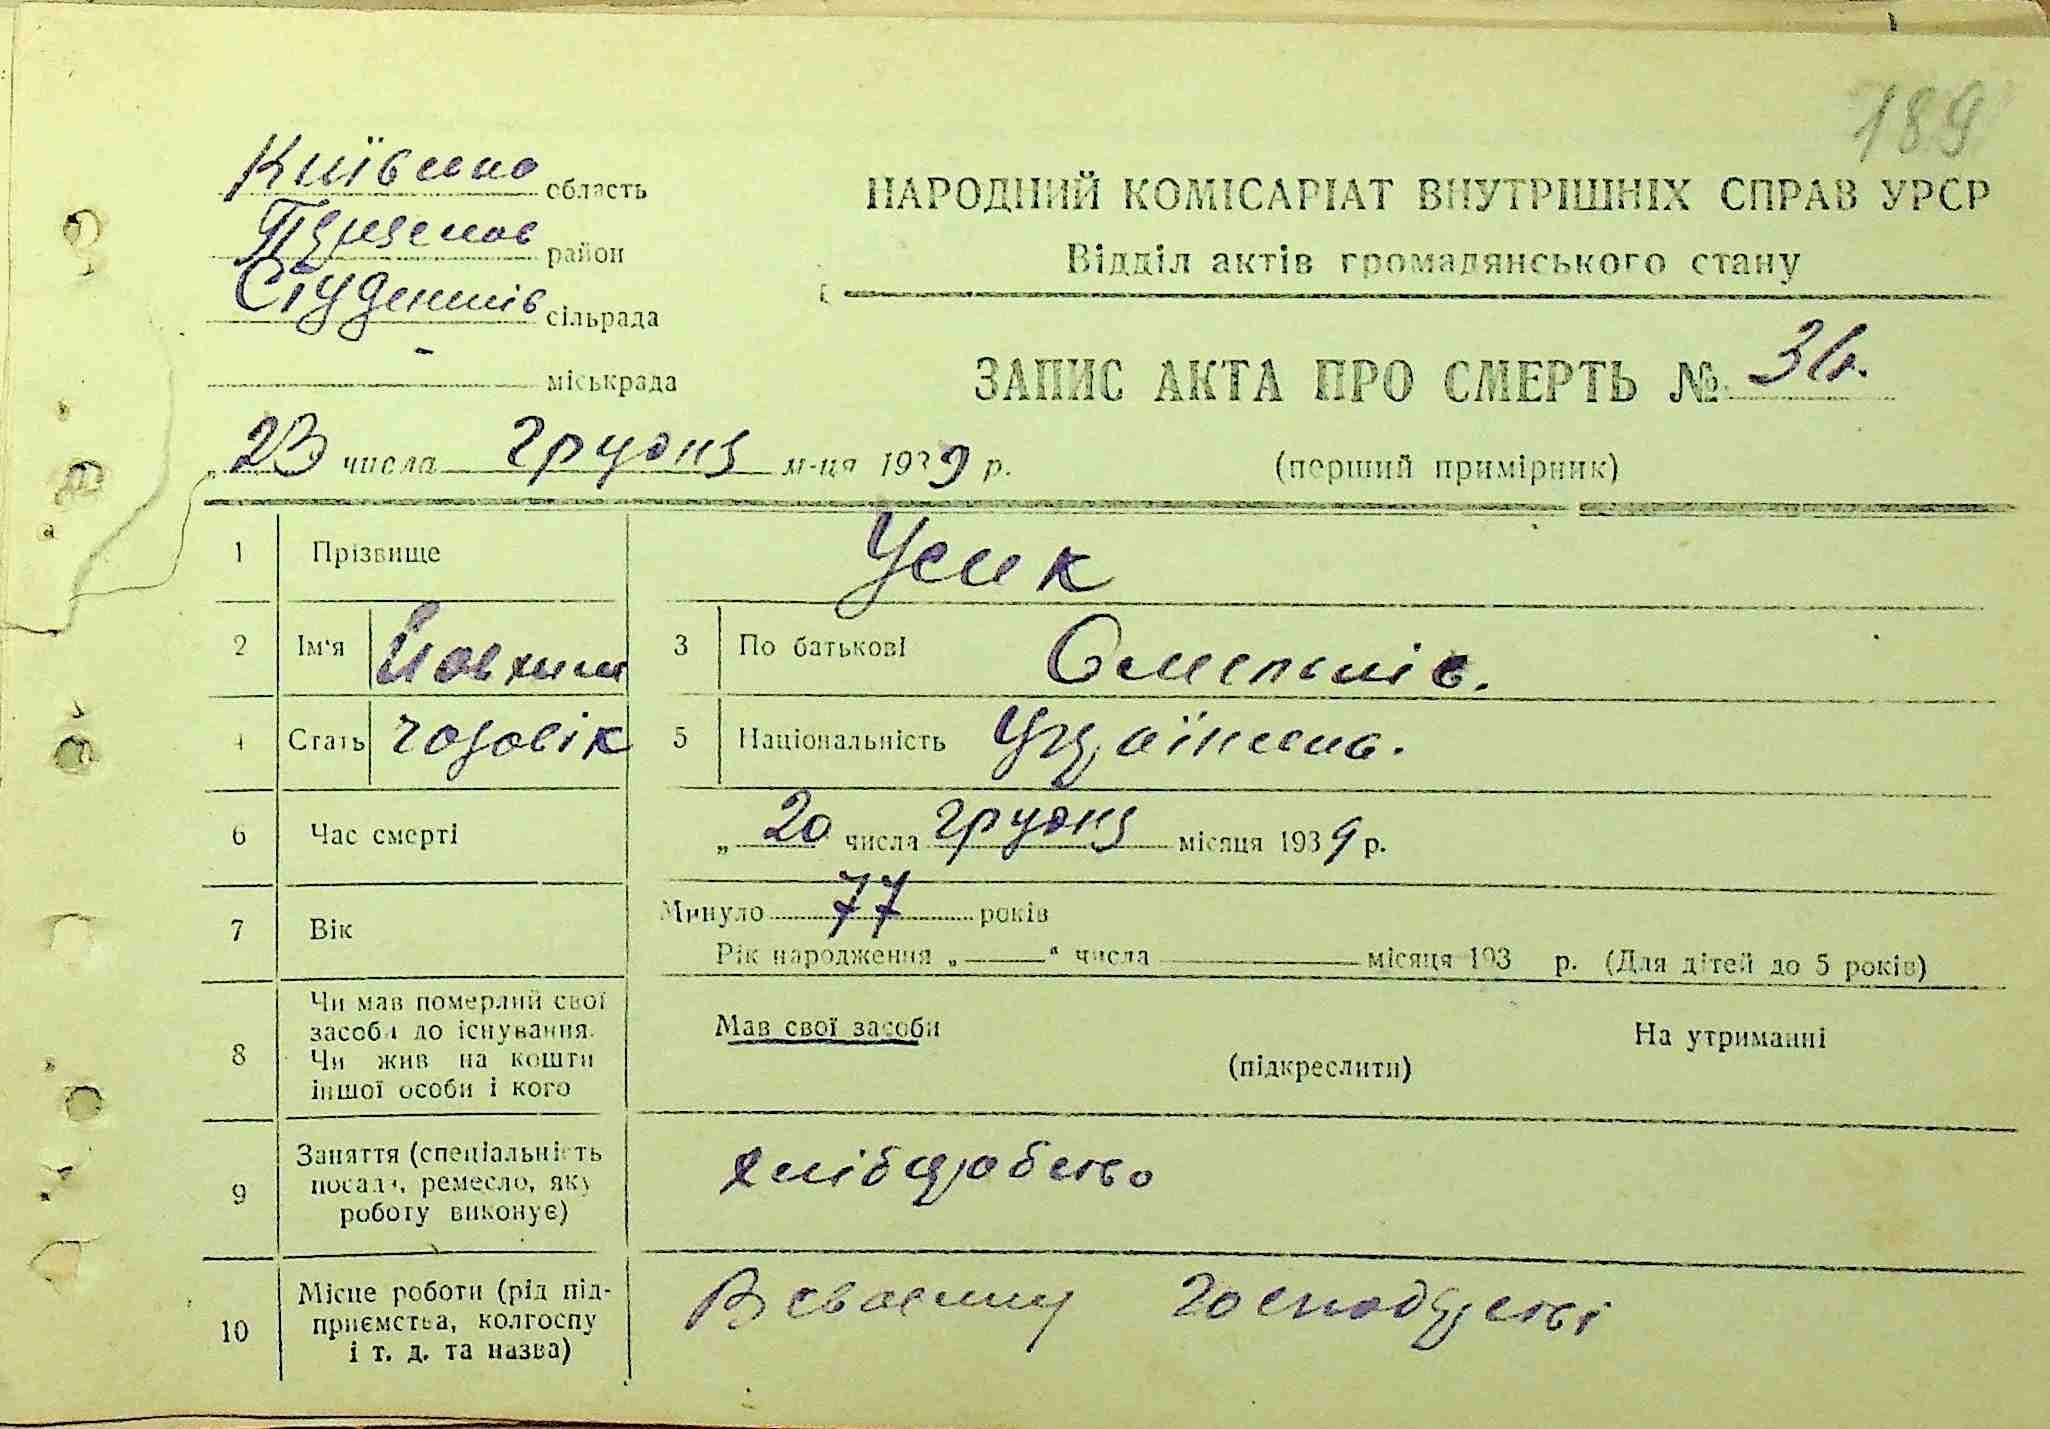 189
Київська область
район
Студенців сільрада
- міськрада
НАРОДНИЙ КОМІСАРІАТ ВНУТРІШНІХ СПРАВ УРСР
Відділ актів громадянського стану
ЗАПИС АКТА ПРО СМЕРТЬ №
„23 числа грудня м-ця 1939 р.
(перший примірник)
1 Прізвище Усик
2 Ім'я Йовхим 3 По батькові Омельков.
4 Стать чоловік 5 Національність Українець.
6 Час смерті „20 числа грудня місяця 1939 р.
7 Вік Минуло 77 років
Рік народження „——" числа —— місяця 193 р. (Для дітей до 5 років)
8 Чи мав померлий свої
засоби до існування.
Чи жив на кошти
іншої особи і кого
Мав свої засоби На утриманні
(підкреслити)
9 Заняття (спеціальність
посада, ремесло, яку
роботу виконує)
хліборобство
10 Місце роботи (рід під-
приємства, колгоспу
і т. д. та назва)
В своєму господарстві